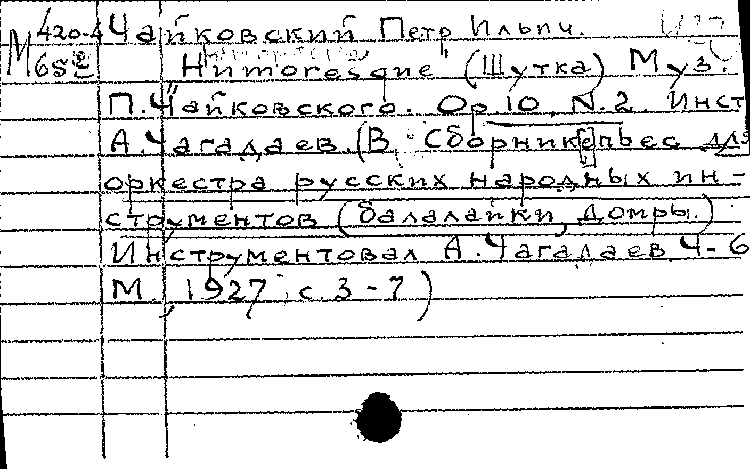 М 420-4 Чайковский Петр Ильич.
М 65
"Humoresque" (Шутка) Муз.
П. Чайковского. Ор. 10, N. 2. Инст
А. Чагадаев. (В Сборник[е] пьес для
оркестра русских народных ин-
струментов (балалайки, домры.)
Инструментовал А. Чагадаев. Ч-6
М., 1927, с. 3-7)